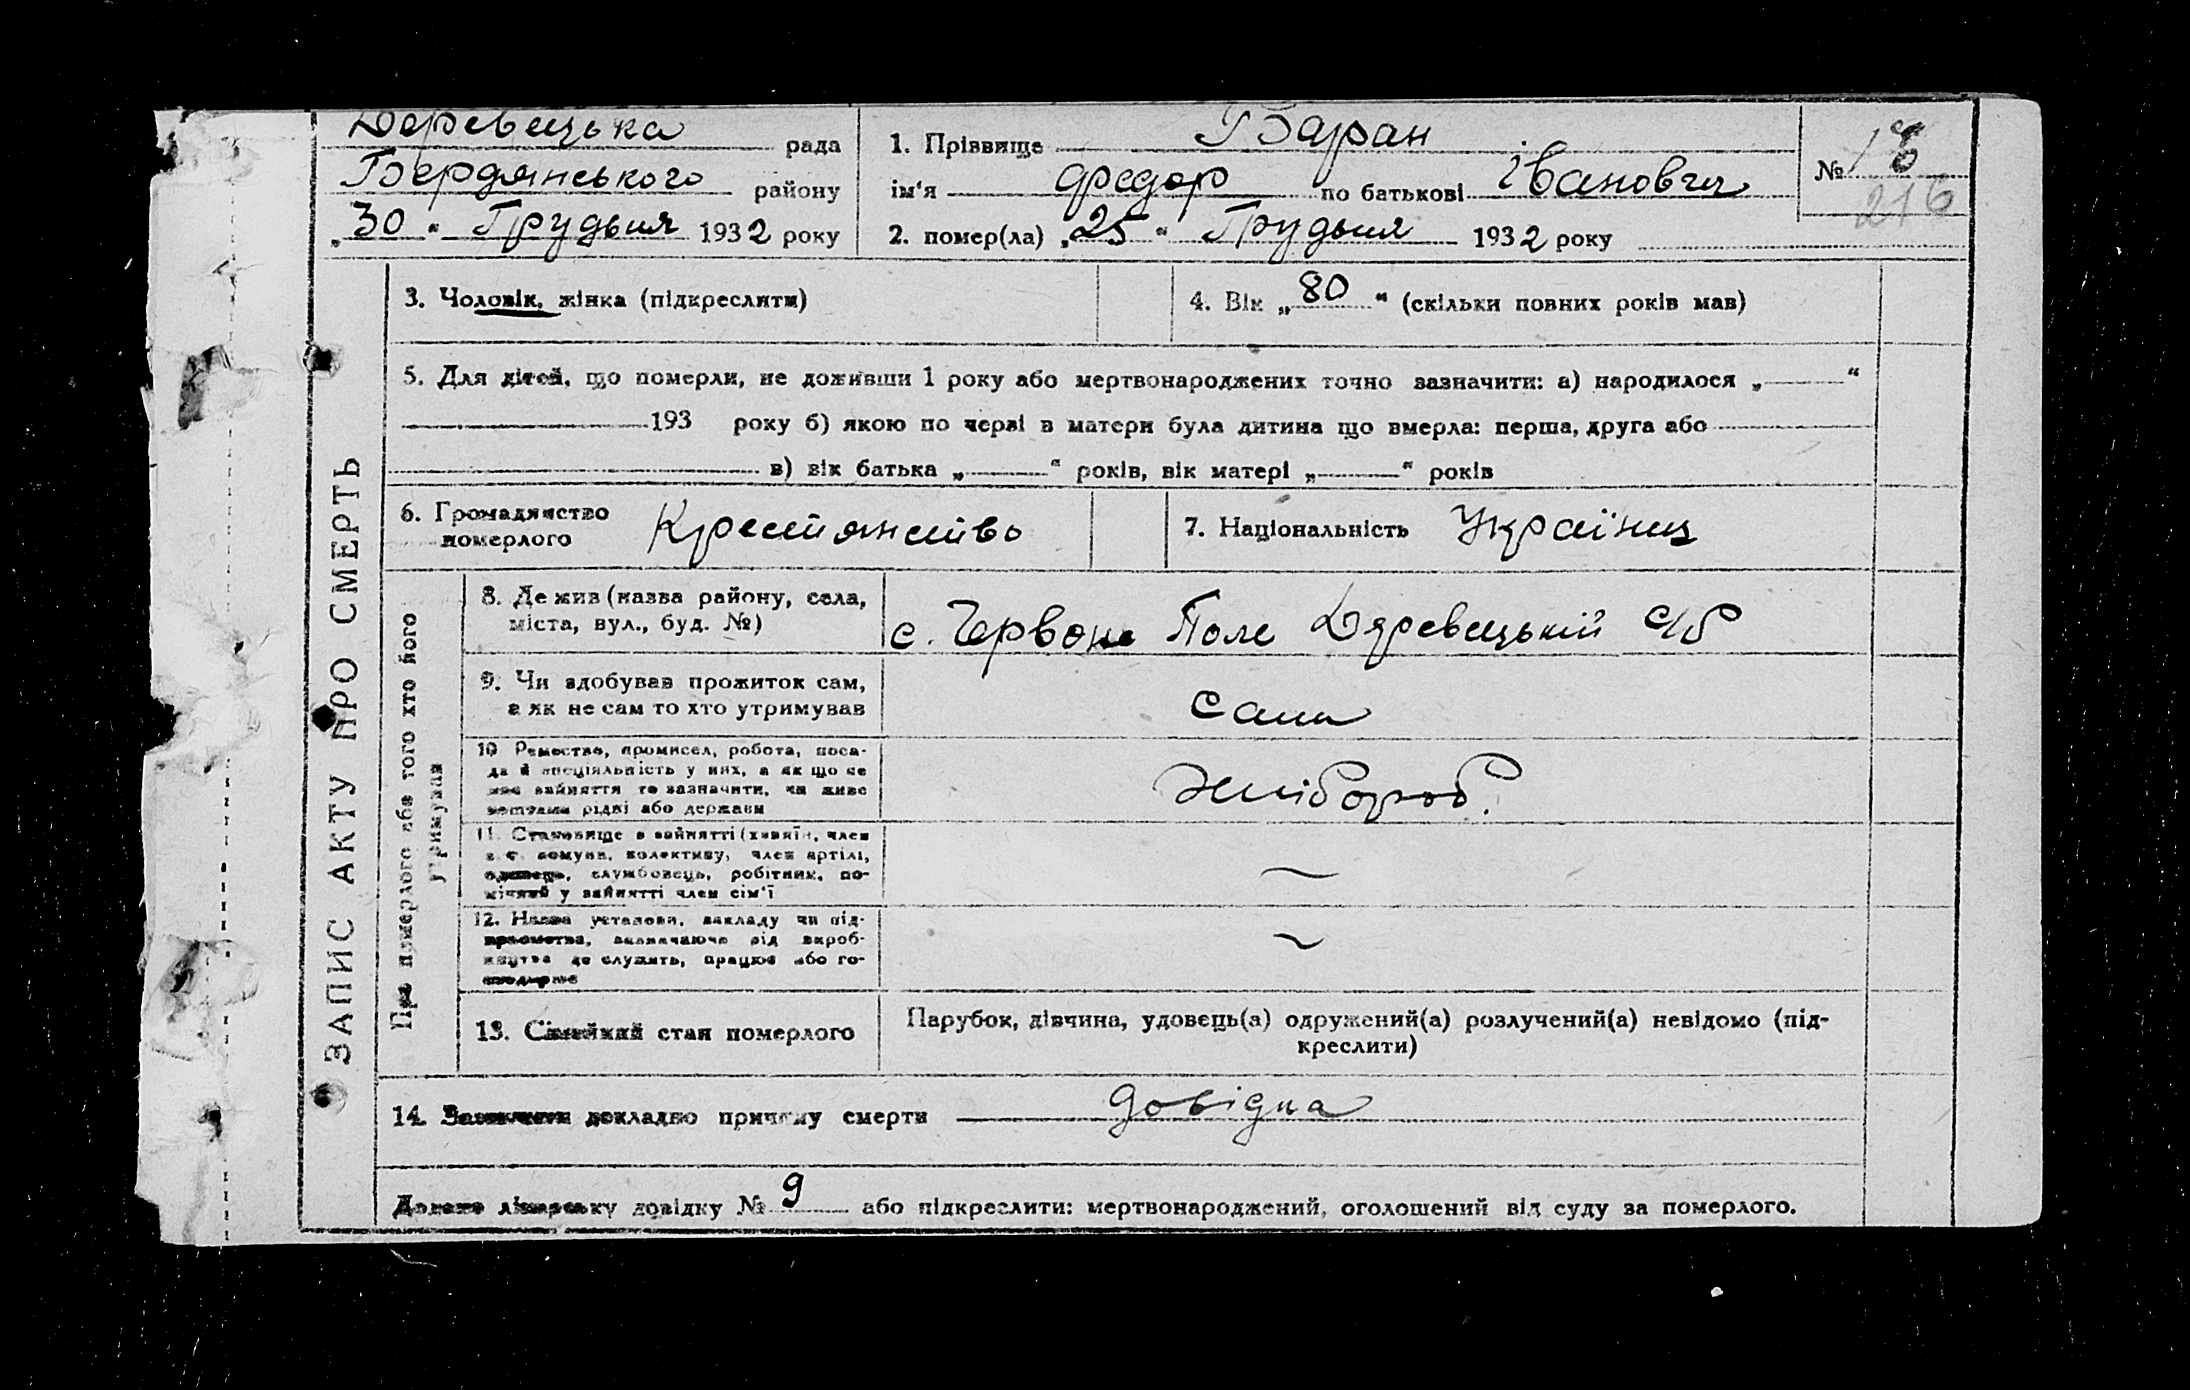 Деревецька рада
Бердянського району
„30“ Грудьня 1932 року
1. Прізвище Баран
ім'я Федор по батькові Івановичь
2. помер(ла) „25“ Грудьня 1932 року
№ 18
216
ЗАПИС АКТУ ПРО СМЕРТЬ
3. Чоловік, жінка (підкреслити)
4. Вік „80“ (скільки повних років мав)
5. Для дітей, що померли, не доживши 1 року або мертвонароджених точно зазначити: а) народилося „ “
193 року б) якою по черзі в матери була дитина що вмерла: перша, друга або
в) вік батька „ “ років, вік матері „ “ років
6. Громадянство
померлого Крестянство
7. Національність Українц
Про померлого або того хто його
утримував
8. Де жив (назва району, села,
міста, вул., буд. №)
с. Червоне Поле Дяревецькій с/р
9. Чи здобував прожиток сам,
а як не сам то хто утримував
сам
10. Ремество, промисел, робота, поса-
да й спеціяльність у них, а як що не
має зайняття то зазначити, чи живе
коштами рідні або держави
Хлібороб.
11. Становище в зайнятті (хазяїн, член
комуни, колективу, член артілі,
одинець, службовець, робітник, по-
мічний у зайнятті член сім'ї
12. Назва установи, закладу чи під-
приємства, зазначаючи рід вироб-
ництва де служить, працює або го-
сподарює
13. Сімейний стан померлого
Парубок, дівчина, удовець(а) одружений(а) розлучений(а) невідомо (під-
креслити)
14. Зазначити докладно причину смерти довідка
Додано лікарську довідку № 9 або підкреслити: мертвонароджений, оголошений від суду за померлого.